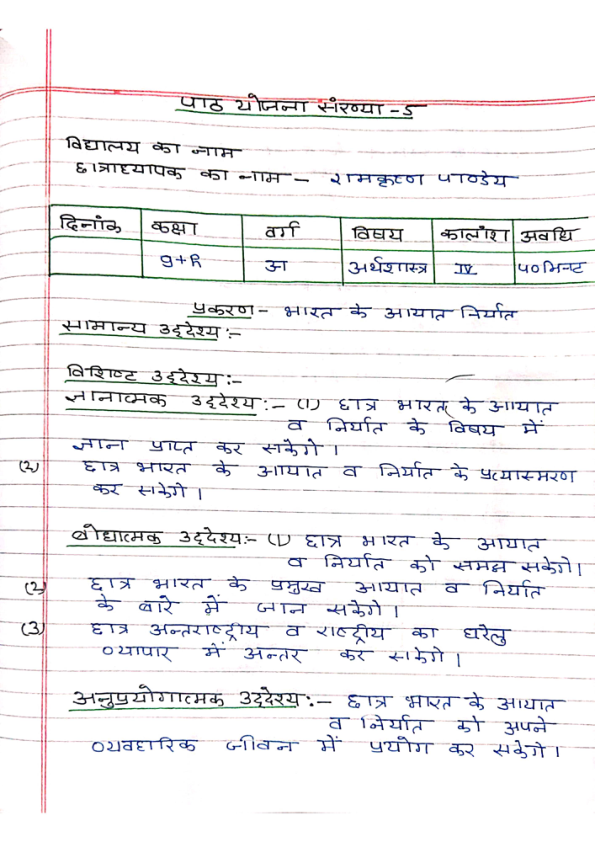 पाठ योजना संख्या -5
विद्यालय का नाम
छात्राध्यापक का नाम - रामकृष्ण पाण्डेय
दिनांक कक्षा वर्ग विषय कालांश अवधि
9th अ अर्थशास्त्र IV 40 मिनट
प्रकरण- भारत के आयात निर्यात
सामान्य उद्देश्य :-
विशिष्ट उद्देश्य:-
ज्ञानात्मक उद्देश्य:- (1) छात्र भारत के आयात
व निर्यात के विषय में
ज्ञान प्राप्त कर सकेगे।
(2) छात्र भारत के आयात व निर्यात के प्रत्यास्मरण
कर सकेगे।
बोधात्मक उद्देश्य:- (1) छात्र भारत के आयात
व निर्यात को समझ सकेगे।
(2) छात्र भारत के प्रमुख आयात व निर्यात
के बारे में जान सकेगे।
(3) छात्र अन्तराष्ट्रीय व राष्ट्रीय का घरेलु
व्यापार में अन्तर कर सकेगे।
अनुप्रयोगात्मक उद्देश्य:- छात्र भारत के आयात
व निर्यात को अपने
व्यवहारिक जीवन में प्रयोग कर सकेगे।